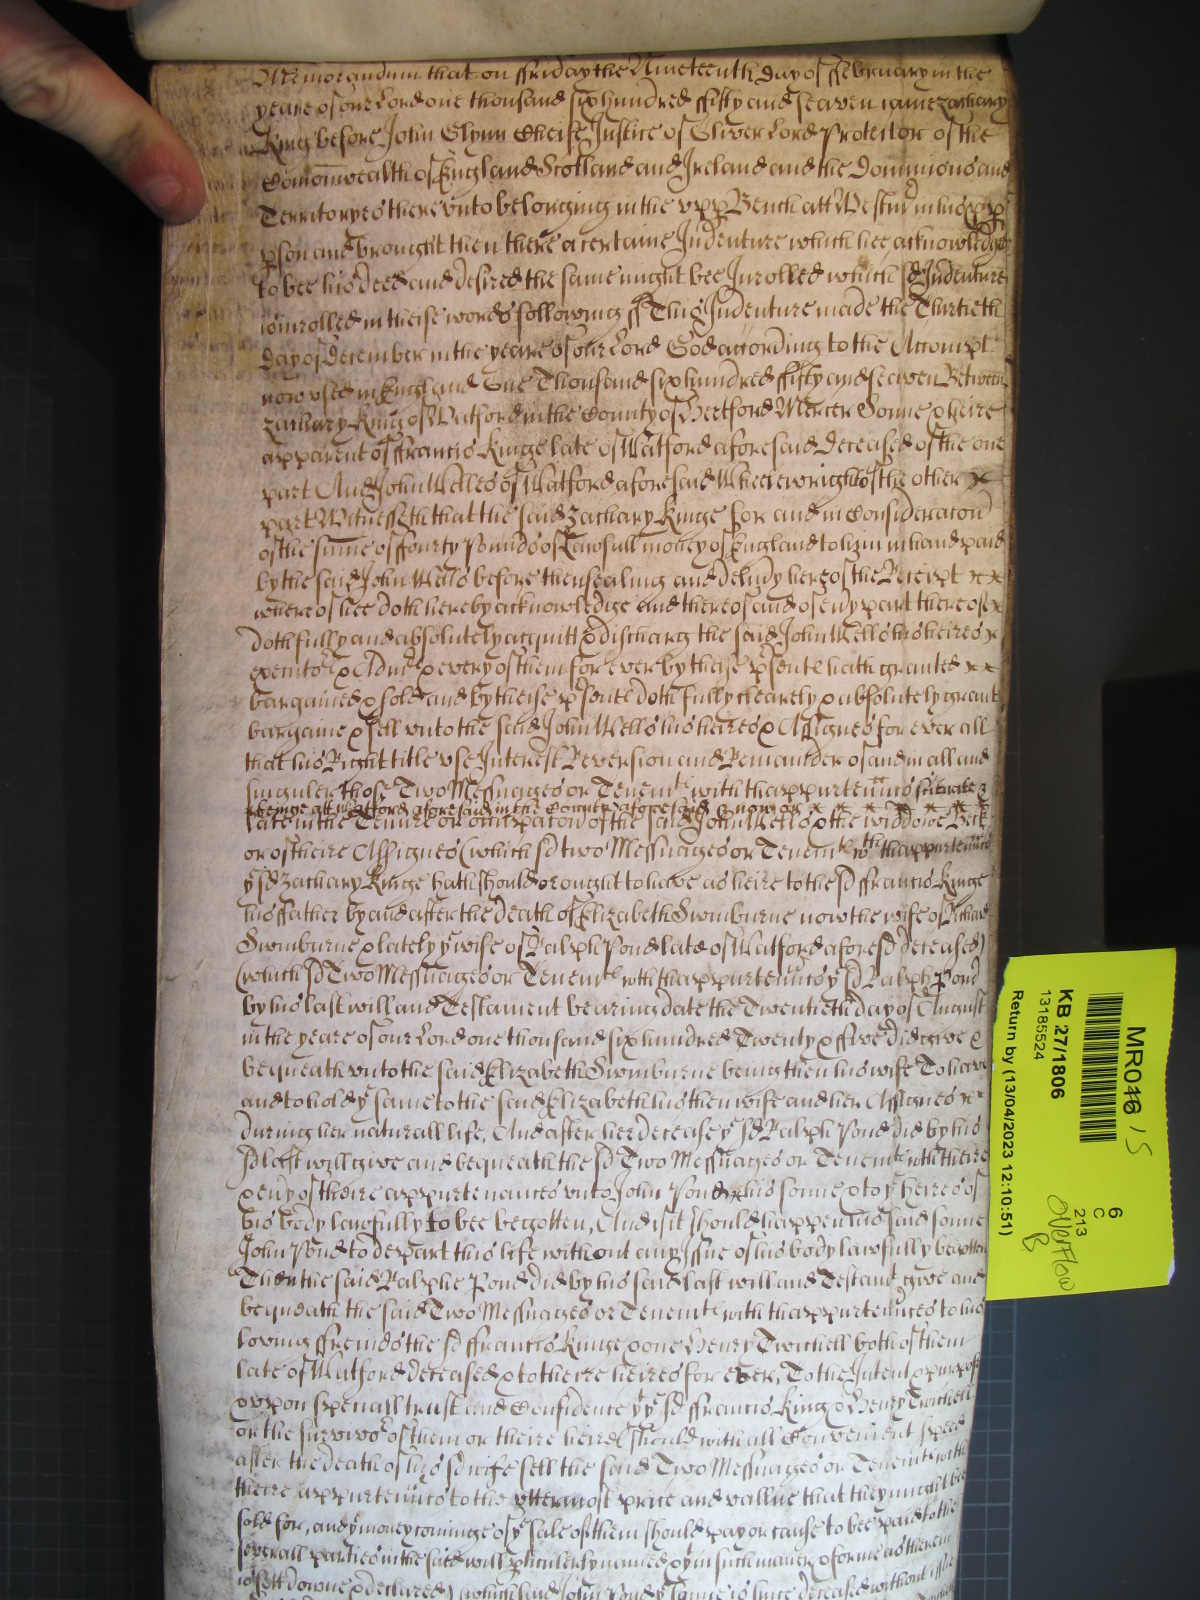 Memorandum that on ffriday the Nineteenth day of ffebruary in the
yeare of our Lord one thousand six hundred ffifty and seaven came Zachary
King before John Glynn Cheife Justice of Oliver Lord Protector of the
Comonwealth of England Scotland and Ireland and the Dominions and
Territoryes thereunto belonging in the upp Bench att Westm in his pp
pson and brought then there a certaine Indenture which hee acknowledged
to bee his deed and desired the same might bee Inrolled which sd Indenture
is inrolled in theise words following ss This Indenture made the Thirtieth
day of December in the yeare of our Lord God according to the Accompt
now used in England One Thousand six hundred ffifty and seaven Between
Zachary King of Watford in the County of Hertford Mercer Sonne & heire
apparent of ffrancis Kinge late of Watford aforesaid deceased of the one
part And John Welles of Watford aforesaid Wheelewright of the other x
part Witnesseth that the said Zachary Kinge for and in Consideracon
of the sume of fourty Pounds of Lawfull money of England to him in hand paid
by the said John Wells before thensealing and delivy hereof the Receipt x x
whereof hee doth hereby acknowledge and thereof and of evy part thereof x
doth fully and absolutely acquitt & discharg the said John Wells his heires x
executors & Admrs & every of them for ever by theise psents hath granted x x
bargained & sold and by theise psents doth fully clearely & absolutely grant
bargaine & sell unto the said John Wells his heires & Assignes for ever all
that his Right title use Interest Reversion and Remainder of and in all and
singuler those Two Messuages or Tenemts with thappurtennces scituate &
beinge att Watford aforesaid in the County aforesaid & now or x x x x x x
late in the Tenure or occupacon of the said John Wells & the widdowe
or of theire Assignes (which sd two Messuages or Tenemts wth thappurtennces
ye sd Zachary Kinge hath should or ought to have as heire to the sd ffrancis Kinge
his father by and after the death of Elizabeth Swinburne now the wife of Richard
Swinburne & lately ye wife of Ralph Pond late of Watford aforesd deceased)
(which sd Two Messuages or Tenemts with thappurtennces ye sd Ralph Pond
by his last will and Testament bearing date the Twentieth day of August
in the yeare of our Lord one thousand six hundred Twenty & ffive did give &
bequeath unto the said Elizabeth Swinburne being then his wife To have
and to hold ye same to the said Elizabeth his then wife and her Assignes x x
during her naturall life, And after her decease ye sd Ralph Pond did by his
sd last will give and bequeath the sd Two Messuages or Tenemts with theire
& evy of theire appurtenances unto John Pond his sonne & to ye heires of
his body lawfully to bee begotten, And if it should happen his said sonne
John Pond to depart this life without any Issue of his body lawfully begotten
Then the said Ralphe Pond did by his said last will and Testamt give and
bequeath the said Two Messuages or Tenemts with thappurtennces to his
loving ffreinds the sd ffrancis Kinge & one Henry Twichell both of them
late of Watford deceased & to theire heires for ever, To the Intent & purpose
& upon speciall trust and Confidence yt ye sd ffrancis King & Henry Twichell
or the survivor of them or theire heires should with all Convenient speed
after the death of his sd wife sell the said Two Messuages or Tenemts with
theire appurtennces to the uttermost price and vallue that they might bee
sold for, and ye money cominge of ye sale of them should pay or cause to bee paid to the
severall parties in the said will pticulerly named & in such maner & forme as therein
is sett downe & declared) which said John Pond ye same is since deceased without issue
MR046 / S
KB 27/1806
13185524
Return by (13/04/2023 12:10:51)
6
C
213
overflow
B